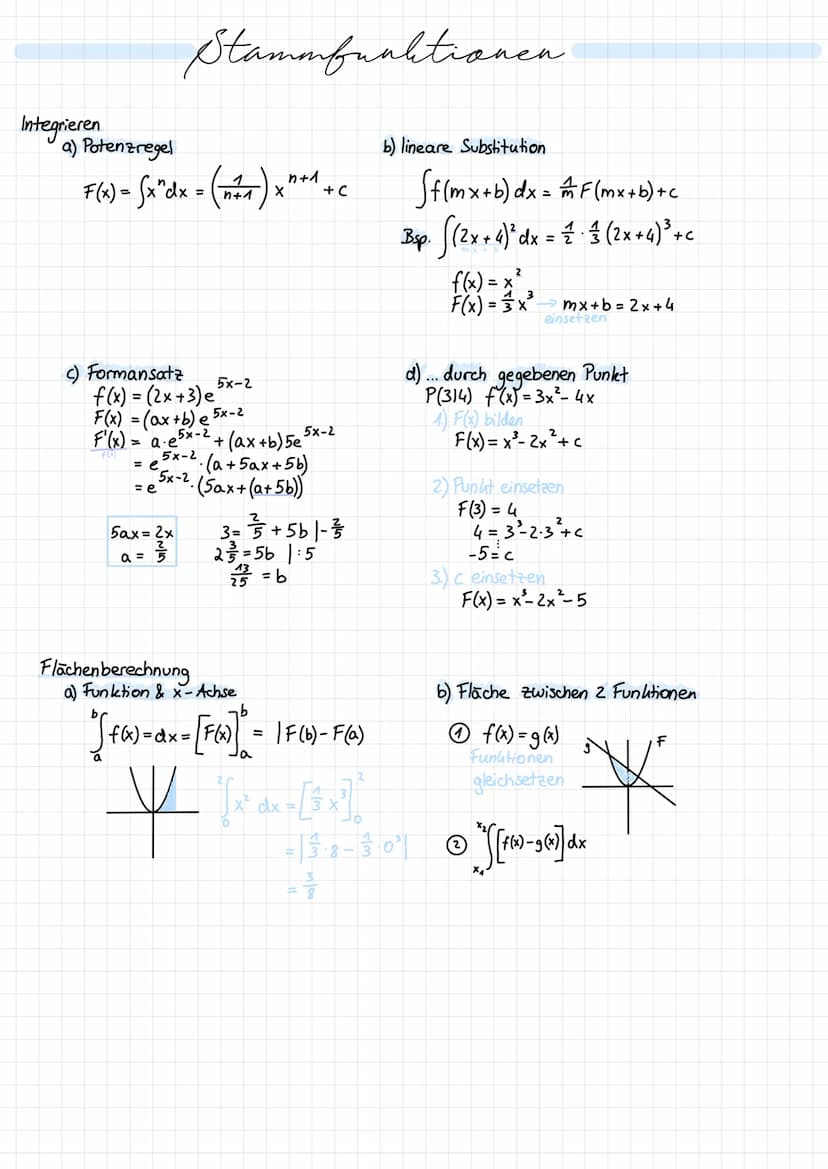 Stammfunktionen
Integrieren
a) Potenzregel
F(x) = ∫xⁿdx = (1/(n+1)) xⁿ⁺¹ + c
b) lineare Substitution
∫f(mx+b) dx = 1/m F(mx+b)+c
Bsp. ∫(2x+4)² dx = 1/2 · 1/3 (2x+4)³+c
f(x) = x²
F(x) = 1/3 x³ → mx+b = 2x+4
einsetzen
c) Formansatz
f(x) = (2x+3)e^(5x-2)
F(x) = (ax+b) e^(5x-2)
F'(x) = a·e^(5x-2) + (ax+b) 5e^(5x-2)
f(x)
= e^(5x-2) · (a+5ax+5b)
= e^(5x-2) · (5ax+(a+5b))
5ax = 2x
a = 2/5
3 = 2/5 + 5b |-2/5
2 3/5 = 5b |:5
13/25 = b
d) ... durch gegebenen Punkt
P(3|4) f(x) = 3x² - 4x
1) F(x) bilden
F(x) = x³ - 2x² + c
2) Punkt einsetzen
F(3) = 4
4 = 3³ - 2·3² + c
-5 = c
3.) c einsetzen
F(x) = x³ - 2x² - 5
Flächenberechnung
a) Funktion & x-Achse
∫ₐᵇ f(x) = dx = [F(x)]ₐᵇ = |F(b) - F(a)
∫₀² x² dx = [1/3 x³]₀²
= |1/3 · 8 - 1/3 · 0³|
= 3/8
b) Fläche zwischen 2 Funktionen
① f(x) = g(x)
Funktionen
gleichsetzen
g F
② ∫ₓ₁ˣ² [f(x) - g(x)] dx